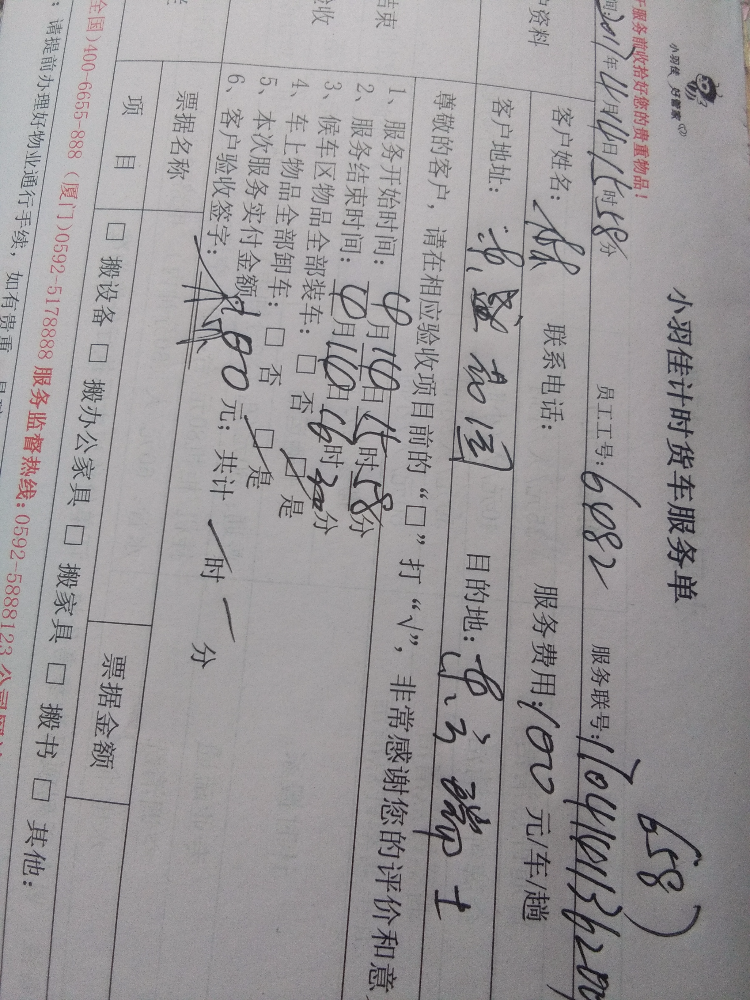 小羽佳 好管家
小羽佳计时货车服务单
658)
服务前收拾好您的贵重物品!
间:2017年4月16日15时58分 员工工号:6482 服务联号:
户资料
客户姓名:林 联系电话: 服务费用:100元/车/趟
客户地址: 目的地:
尊敬的客户,请在相应验收项目前的“□”打“√”,非常感谢您的评价和意
结束
验收
1、服务开始时间:4月16日15时58分
2、服务结束时间:4月16日16时30分
3、候车区物品全部装车:□否 □是
4、车上物品全部卸车:□否 □是
5、本次服务实付金额 180元;共计 / 时 / 分
6、客户验收签字:
票据名称 票据金额
项目 □搬设备 □搬办公家具 □搬家具 □搬书 □其他:
全国)400-6655-888(厦门)0592-5178888 服务监督热线:0592-5888123
:请提前办理好物业通行手续,如有贵重